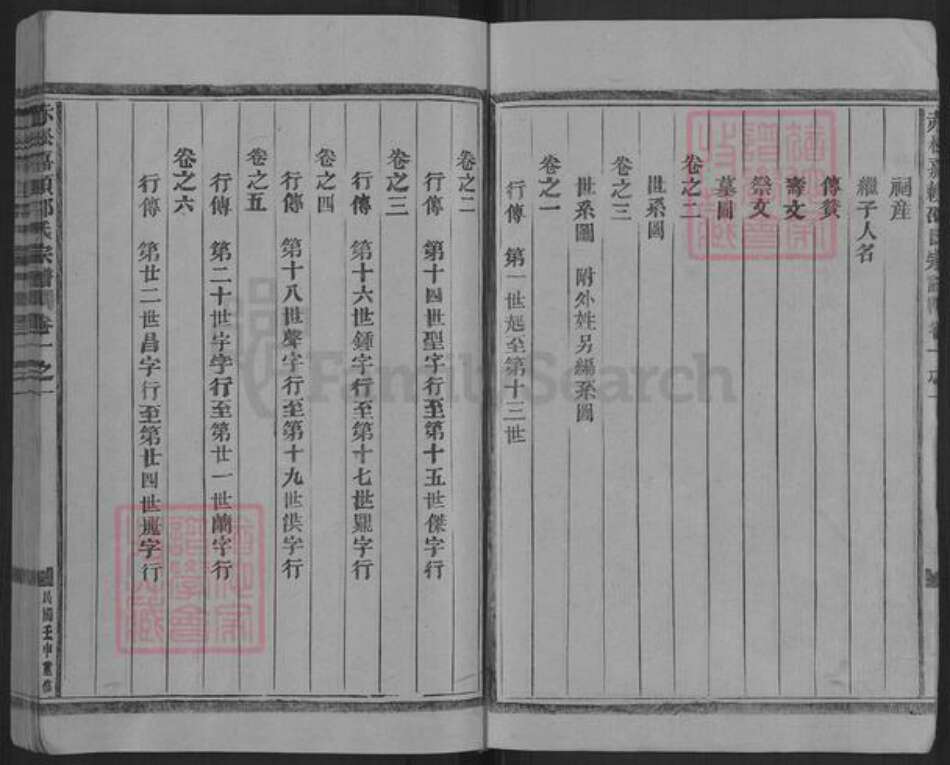 祠产
繼子人名
傳贊
壽文
祭文
墓圖
卷之二
世系圖
卷之三
世系圖 附外姓另編系圖
卷之一
行傳 第一世起至第十三世
卷之二
行傳 第十四世聖字行至第十五世傑字行
卷之三
行傳 第十六世鍾字行至第十七世 字行
卷之四
行傳 第十八世聲字行至第十九世洪字行
卷之五
行傳 第二十世字字行至第廿一世蘭字行
卷之六
行傳 第廿二世昌字行至第廿四世 字行
氏宗譜 卷一之一
民國壬申重修
FamilySearch